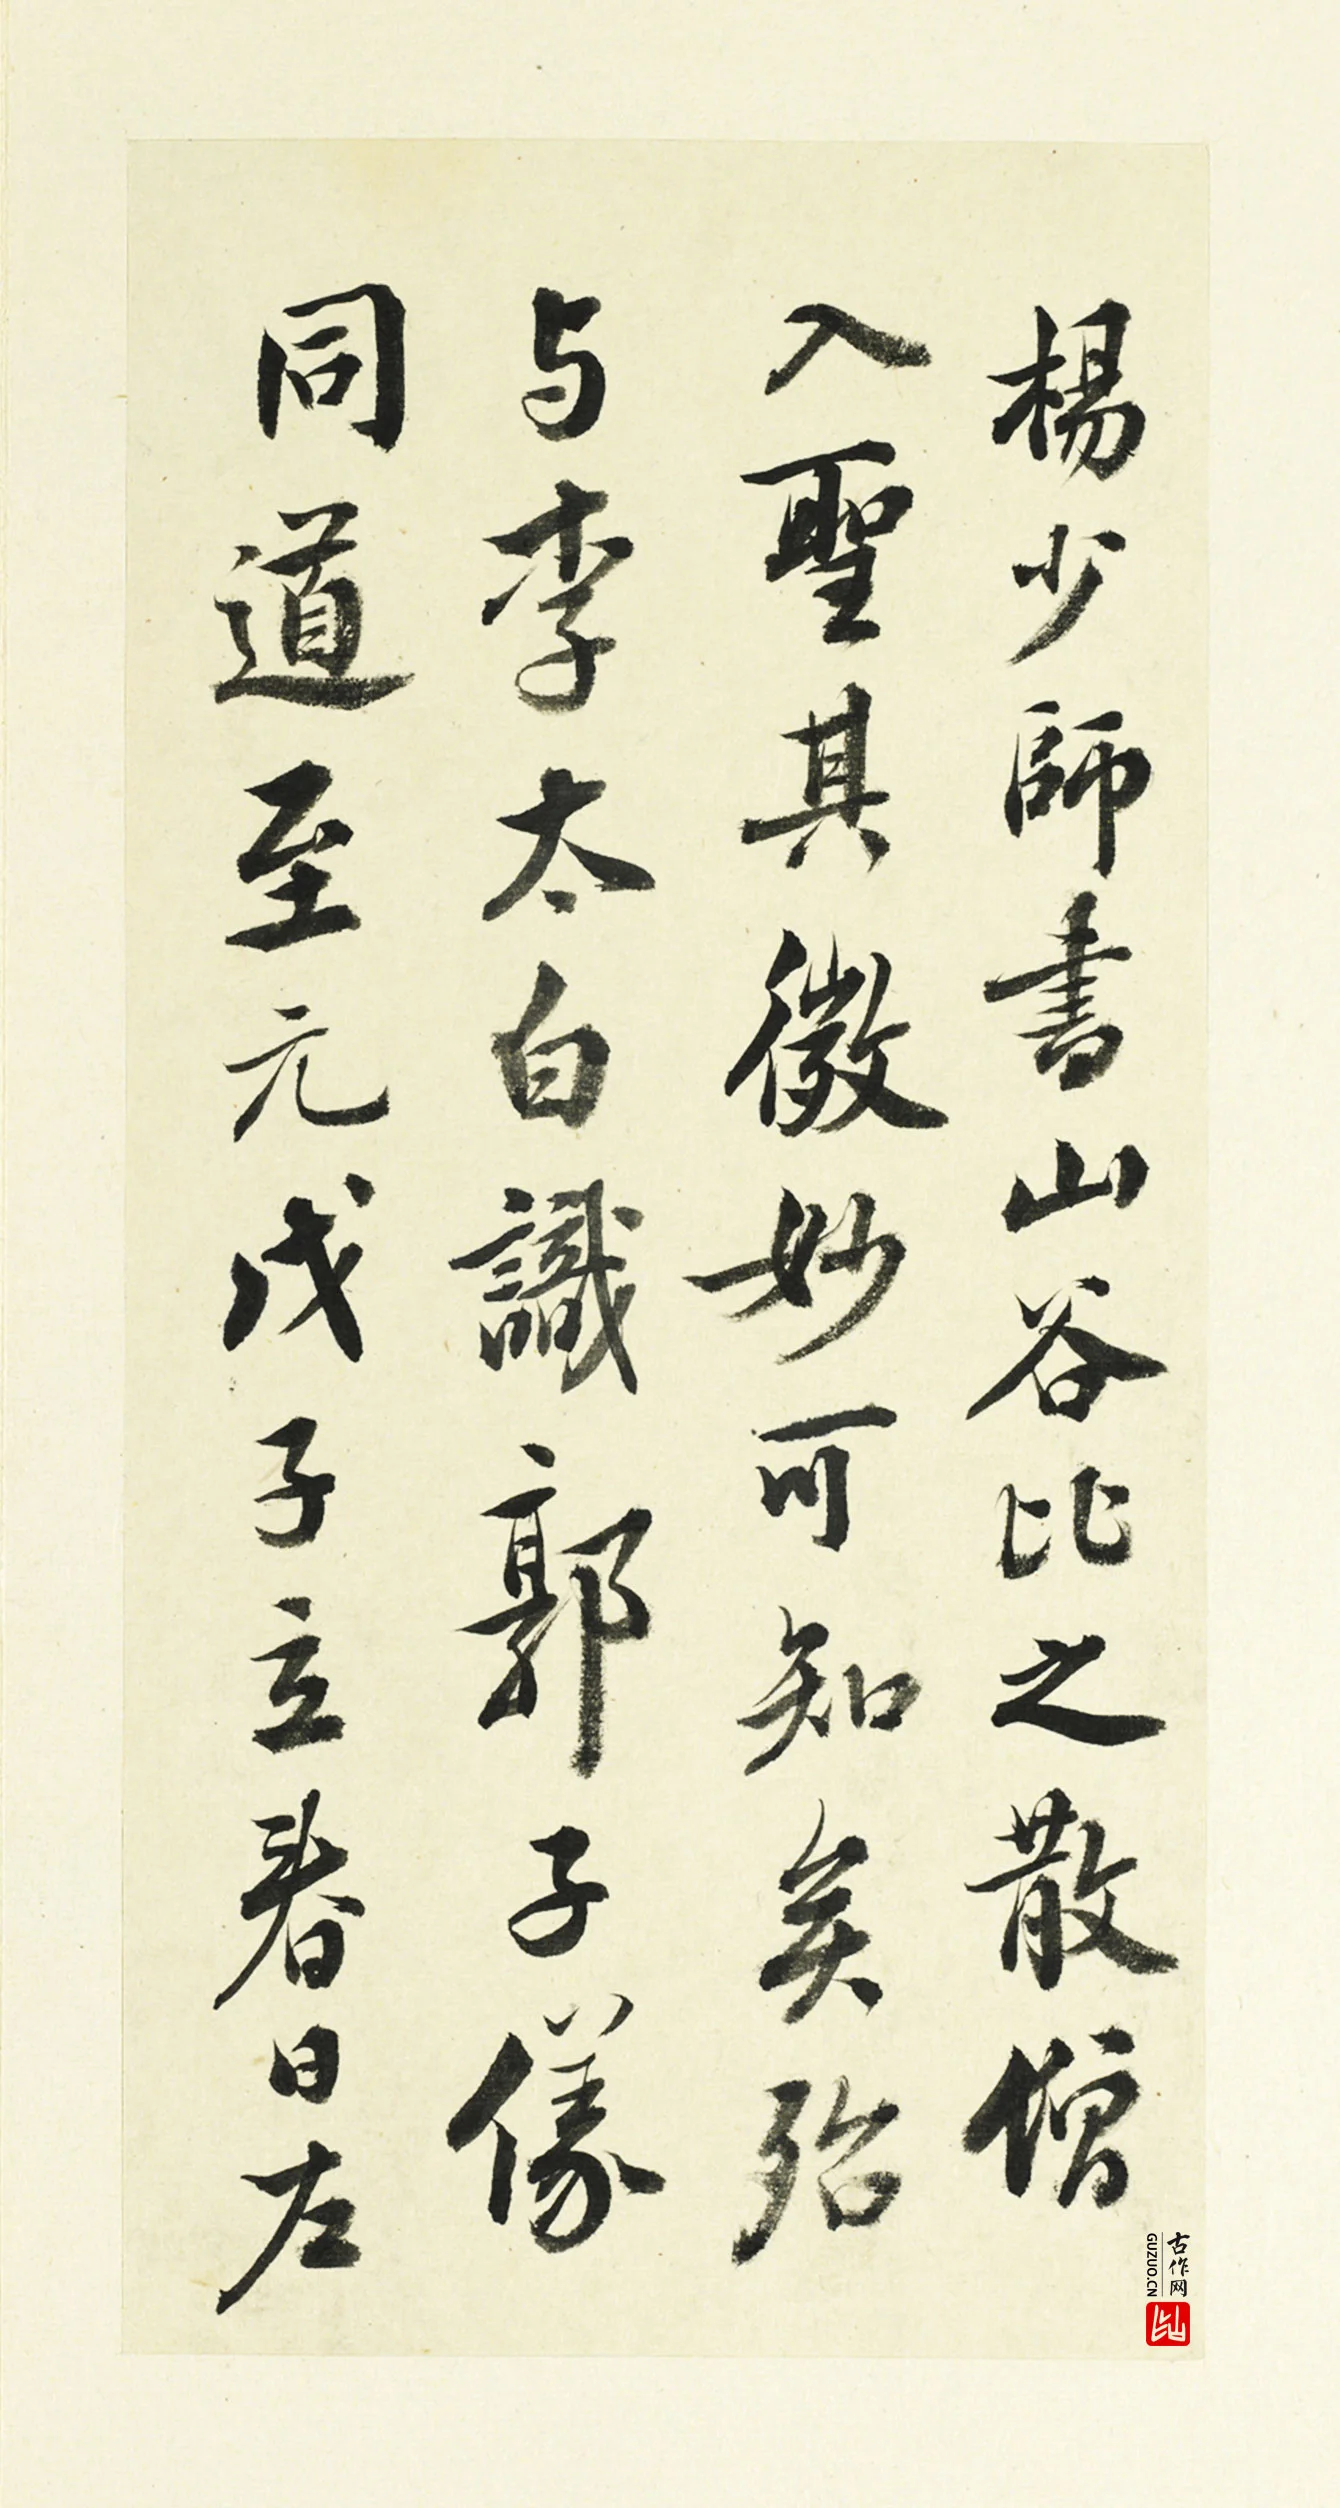 楊少師書山谷比之散僧
入聖其微妙可知矣殆
与李太白識郭子儀
同道至元戊子立春日左
古作网
GUZUO.CN